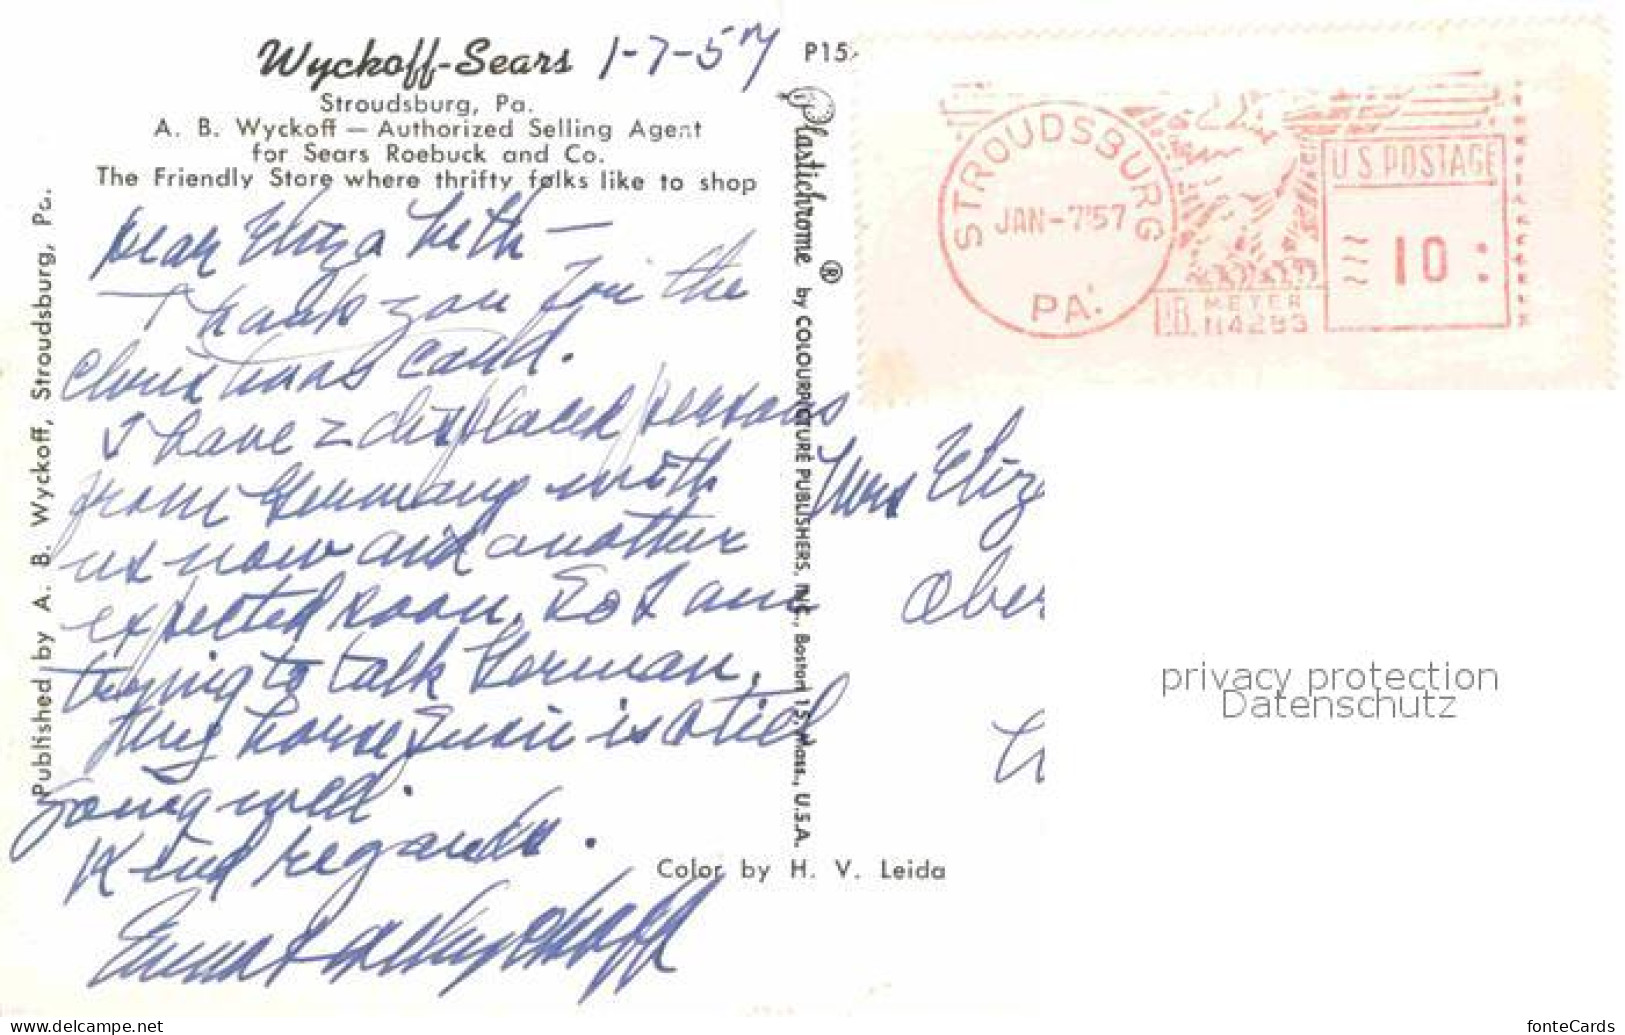 Wyckoff-Sears 1-7-57
Stroudsburg, Pa.
A. B. Wyckoff — Authorized Selling Agent
for Sears Roebuck and Co.
The Friendly Store where thrifty folks like to shop
Dear Elizabeth —
Thank you for the
Christmas card.
I have 2 displaced persons
from Germany with
us now and another
expected soon. So I am
trying to talk German.
horse is still
going well.
Kind regards.
Wyckoff
Published by A. B. Wyckoff, Stroudsburg, Pa.
P15
Plastichrome ® by COLOURPICTURE PUBLISHERS, INC., Boston 15, Mass., U.S.A.
Color by H. V. Leida
STROUDSBURG
JAN-7'57
PA.
U.S. POSTAGE
10
P.B. METER
114293
Mrs Eliz
Ober
privacy protection
Datenschutz
www.delcampe.net
fonteCards